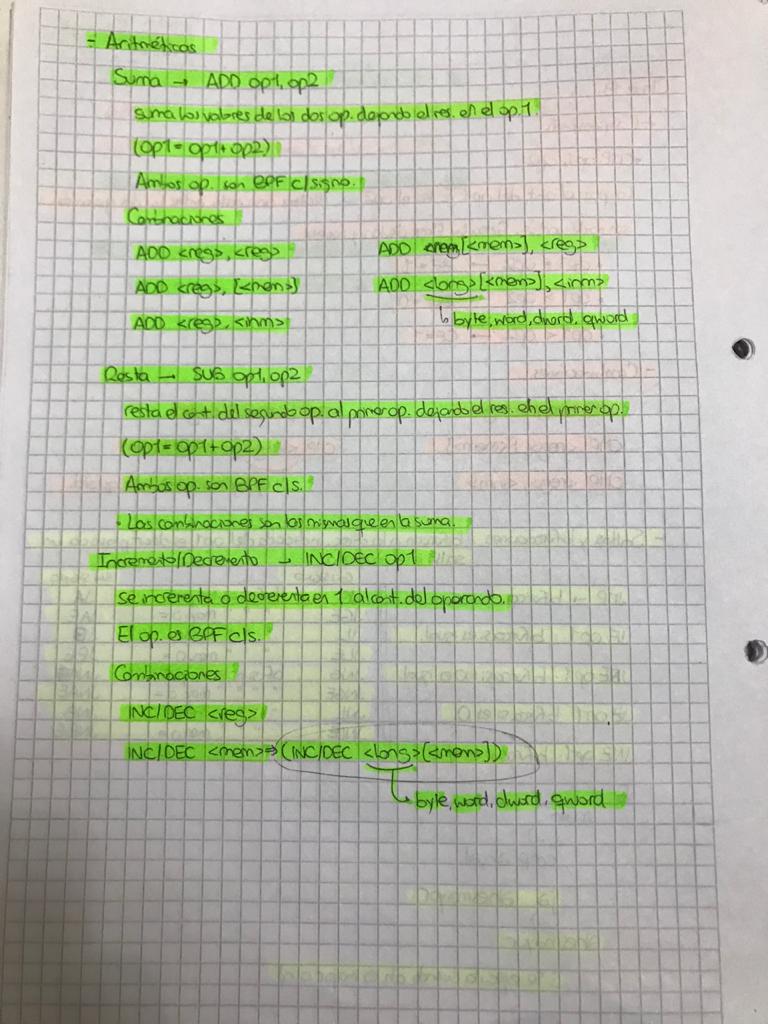 = Aritméticas
Suma → ADD op1, op2
suma los valores de los dos op. dejando el res. en el op.1
(op1 = op1 + op2)
Ambos op. son BPF c/signo.
Combinaciones
ADD <reg>, <reg>
ADD <reg>, [<mem>]
ADD <reg>, <inm>
ADD [<mem>], <reg>
ADD <long>[<mem>], <inm>
↳ byte, word, dword, qword
Resta → SUB op1, op2
resta el cont. del segundo op. al primer op. dejando el res. en el primer op.
(op1 = op1 + op2)
Ambos op. son BPF c/s.
· Las combinaciones son las mismas que en la suma.
Incremento/Decremento → INC/DEC op1
se incrementa o decrementa en 1 al cont. del operando.
El op. es BPF c/s.
Combinaciones
INC/DEC <reg>
INC/DEC <mem> ⇒ (INC/DEC <long>[<mem>])
↳ byte, word, dword, qword